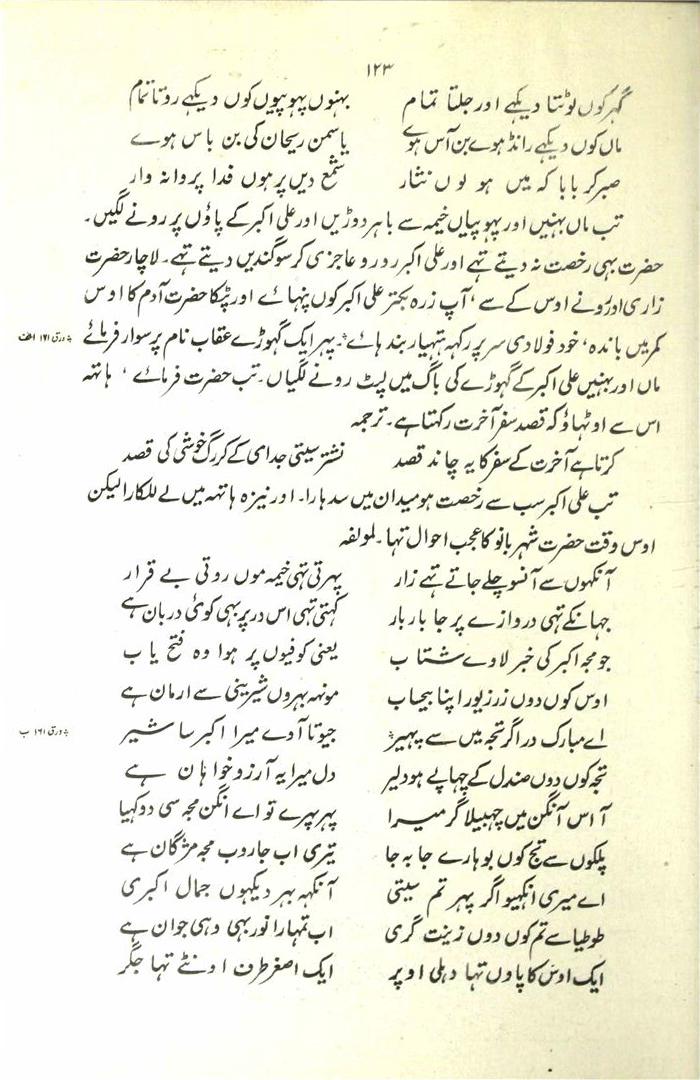 ۱۲۳
گہر کوں لوٹتا دیکھے اور جلتا تمام بہنوں پہوپیوں کوں دیکھے روتا تمام
ماں کوں دیکھے رانڈ ہوے بن آس ہوے یاسمن ریحان کی بن باس ہوے
صبر کر بابا کہ میں ہو لوں نثار شمع دیں پر ہوں فدا پروانہ وار
تب ماں بہنیں اور پہوپیاں خیمہ سے باہر دوڑیں اور علی اکبر کے پاؤں پر رونے لگیں۔
حضرت بھی رخصت نہ دیتے تہے اور علی اکبر رو رو عاجزی کر سوگندیں دیتے تہے۔ لاچار حضرت
زاری اور رونے اوس کے سے، آپ زرہ بکتر علی اکبر کوں پنہائے اور پٹکا حضرت آدم کا اوس
کمر میں باندہ، خود فولادی سر پر رکہہ تہیار بندہائے*۔ پہر ایک گہوڑے عقاب نام پر سوار فرمائے
* ورق ۱۶۱ الف
ماں اور بہنیں علی اکبر کے گہوڑے کی باگ میں لپٹ رونے لگیاں۔ تب حضرت فرمائے، ہاتہہ
اس سے اوٹہاؤ کہ قصد سفر آخرت رکہتا ہے۔ ترجمہ
کرتا ہے آخرت کے سفر کا یہ چاند قصد نشتر سیتی جدای کے کر رگ خوشی کی قصد
تب علی اکبر سب سے رخصت ہو میدان میں سدہارا۔ اور نیزہ ہاتہہ میں لے للکارا لیکن
اوس وقت حضرت شہر بانو کا عجب احوال تہا۔ لمولفہ
آنکہوں سے آنسو چلے جاتے تہے زار پہرتی تہی خیمہ موں روتی بے قرار
جہانکے تہی دروازے پر جا بار بار کہتی تہی اس در پر بہی کوئی دربان ہے
جو مجہ اکبر کی خبر لاوے شتاب یعنی کوفیوں پر ہوا وہ فتح یاب
اوس کوں دوں زر زیور اپنا بیحساب مونہہ بہروں شیرینی سے ارمان ہے
اے مبارک در اگر تجہ میں سے پہیر* جیوتا آوے میرا اکبر سا شیر
* ورق ۱۶۱ ب
تجہ کوں دوں صندل کے چہاپے ہو دلیر دل میرا یہ آرزو خواہان ہے
آ اس آنگن میں چہبیلا گر میرا پہر پہرے تو اے انگن مجہ سی دو کہیا
پلکوں سے تج کوں بوہارے جا بہ جا تیری اب جاروب مجہ مژگان ہے
اے میری انکہیو اگر پہر تم سیتی آنکہہ بہر دیکہوں جمال اکبری
طوطیا سے تم کوں دوں زینت گری اب تمہارا نور بہی وہی جوان ہے
ایک اوس کا پاوں تہا دہلی اوپر ایک اصغر طرف اونٹے تہا جگر